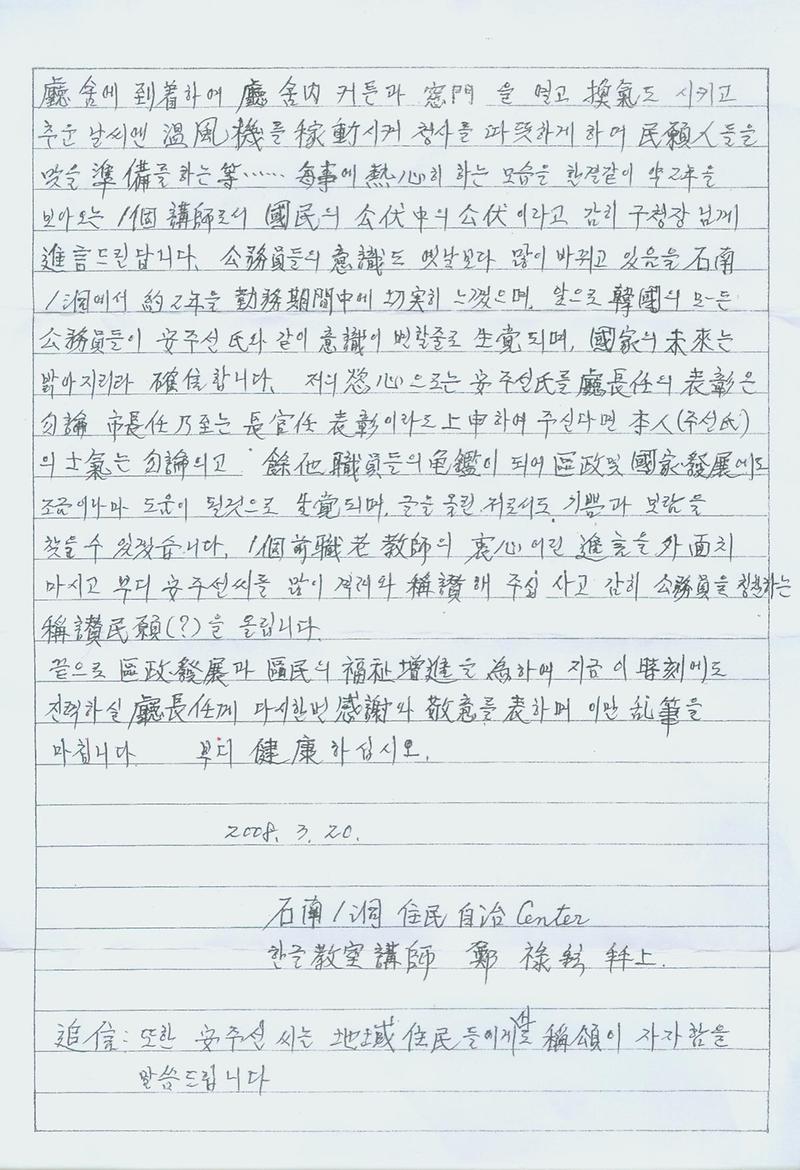 廳舍에 到着하여 廳舍內 커튼과 窓門을 열고 換氣도 시키고
추운 날씨엔 溫風機를 稼動시켜 청사를 따뜻하게 하며 民願人들을
맞을 準備를 하는 等…… 每事에 熱心히 하는 모습을 한결같이 約2年을
보아오는 1個 講師로서 國民의 公伏中의 公伏이라고 감히 구청장님께
進言드린답니다. 公務員들의 意識도 옛날보다 많이 바뀌고 있음을 石南
1洞에서 約2年을 勤務期間中에 切實히 느꼈으며, 앞으로 韓國의 모든
公務員들이 安주선氏와 같이 意識이 변할줄로 生覚되며, 國家의 未來는
밝아지리라 確信합니다. 저의 慾心으로는 安주선氏를 廳長任의 表彰은
勿論 市長任 乃至는 長官任 表彰이라도 上申하여 주신다면 本人(주선氏)
의 士氣는 勿論의고 餘他 職員들의 龜鑑이 되여 區政및 國家發展에도
조금이나마 도움이 될것으로 生覚되며, 글을 올린 저로서도 기쁨과 보람을
찾을 수 있겠습니다. 1個 前職 老 敎師의 衷心어린 進言을 外面치
마시고 부디 安주선씨를 많이 격려와 稱讃해 주십사고 감히 公務員을 칭찬하는
稱讃民願(?)을 올립니다.
끝으로 區政發展과 區民의 福祉增進을 爲하여 지금 이 時刻에도
진력하실 廳長任께 다시한번 感謝와 敬意를 表하며 이만 乱筆을
마칩니다 부디 健康하십시오.
2008. 3. 20.
石南1洞 住民自治 Center
한글敎室講師 鄭祿 拜上.
追信: 또한 安주선씨는 地域住民들에게 稱頌이 자자함을
말씀드립니다